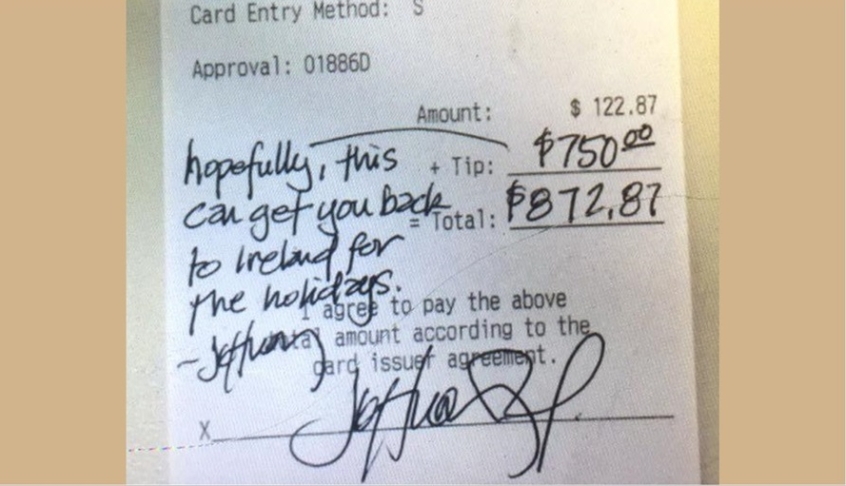 Card Entry Method: S
Approval: 01886D
Amount: $ 122.87
+ Tip: $750.00
= Total: $872.87
hopefully, this
can get you back
to Ireland for
the holidays.
I agree to pay the above
total amount according to the
card issuer agreement.
X